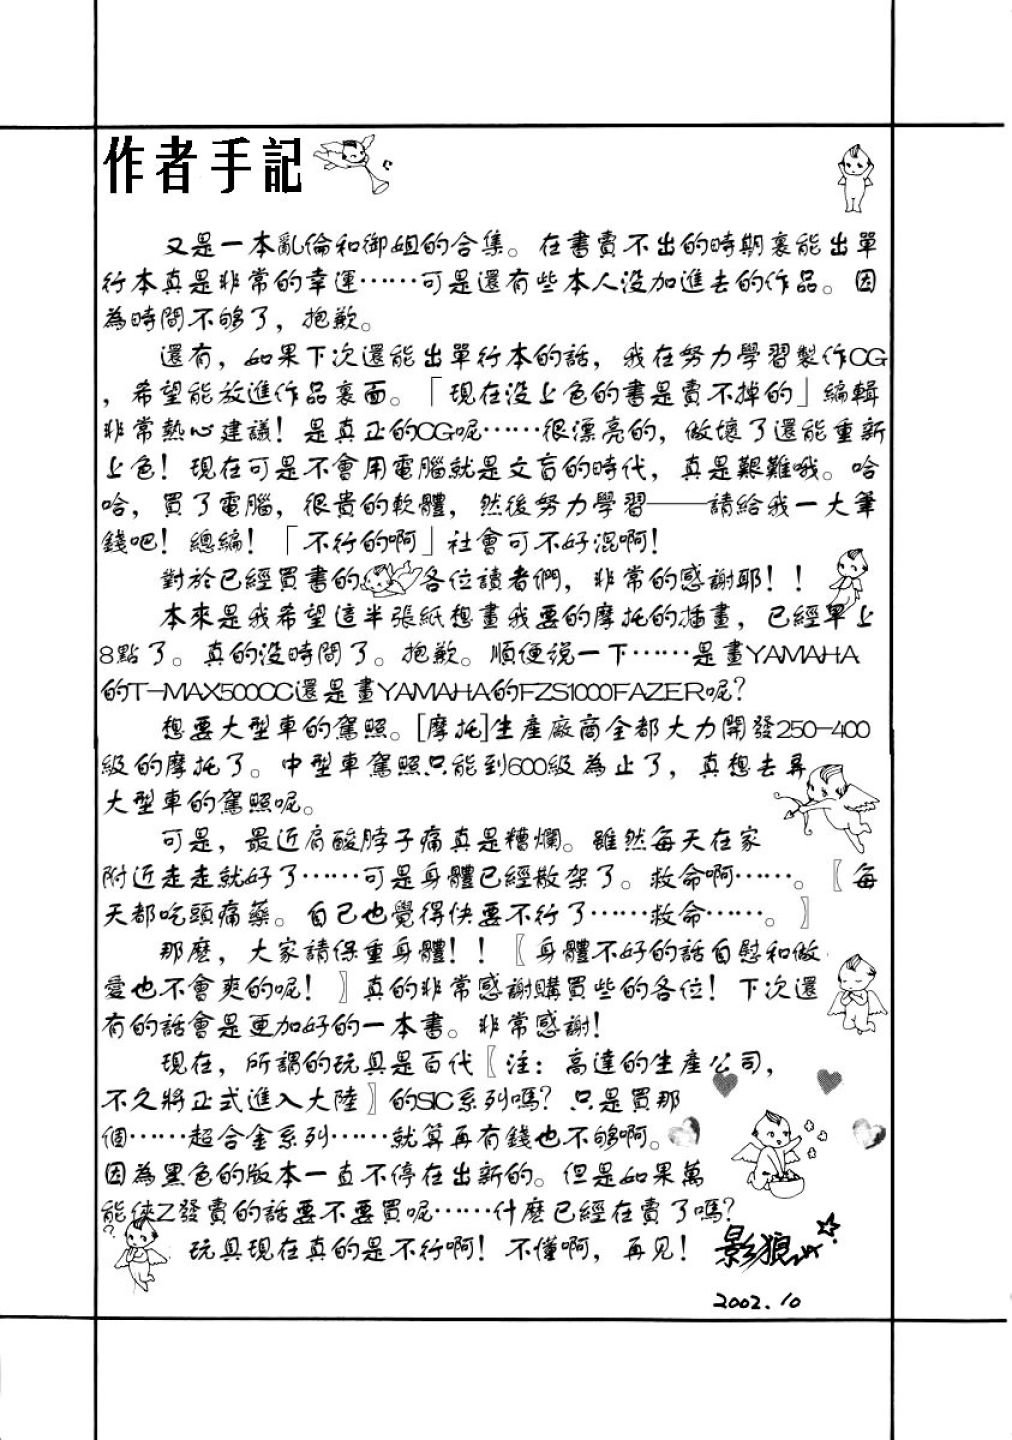 作者手記
又是一本亂倫和御姐的合集。在書賣不出的時期裏能出單
行本真是非常的幸運……可是還有些本人没加進去的作品。因
為時間不够了，抱歉。
還有，如果下次還能出單行本的話，我在努力學習製作CG
，希望能放進作品裏面。「現在没上色的書是賣不掉的」編輯
非常熱心建議！是真正的CG呢……很漂亮的，做壞了還能重新
上色！現在可是不會用電腦就是文盲的時代，真是艱難哦。哈
哈，買了電腦，很貴的軟體，然後努力學習——請給我一大筆
錢吧！總編！「不行的啊」社會可不好混啊！
對於已經買書的各位讀者們，非常的感謝耶！！
本來是我希望這半張紙想畫我要的摩托的插畫，已經早上
8點了。真的没時間了。抱歉。順便説一下……是畫YAMAHA
的T-MAX500CC還是畫YAMAHA的FZS1000FAZER呢？
想要大型車的駕照。[摩托]生產廠商全都大力開發250-400
級的摩托了。中型車駕照只能到600級為止了，真想去弄
大型車的駕照呢。
可是，最近肩酸脖子痛真是糟爛。雖然每天在家
附近走走就好了……可是身體已經散架了。救命啊……。〖每
天都吃頭痛藥。自己也覺得快要不行了……救命……。〗
那麽，大家請保重身體！！〖身體不好的話自慰和做
愛也不會爽的呢！〗真的非常感謝購買些的各位！下次還
有的話會是更加好的一本書。非常感謝！
現在，所謂的玩具是百代〖注：高達的生產公司，
不久將正式進入大陸〗的SIC系列嗎？只是買那
個……超合金系列……就算再有錢也不够啊。
因為黑色的版本一直不停在出新的。但是如果萬
能俠Z發賣的話要不要買呢……什麽已經在賣了嗎？
玩具現在真的是不行啊！不懂啊，再见！
影狼
2002.10